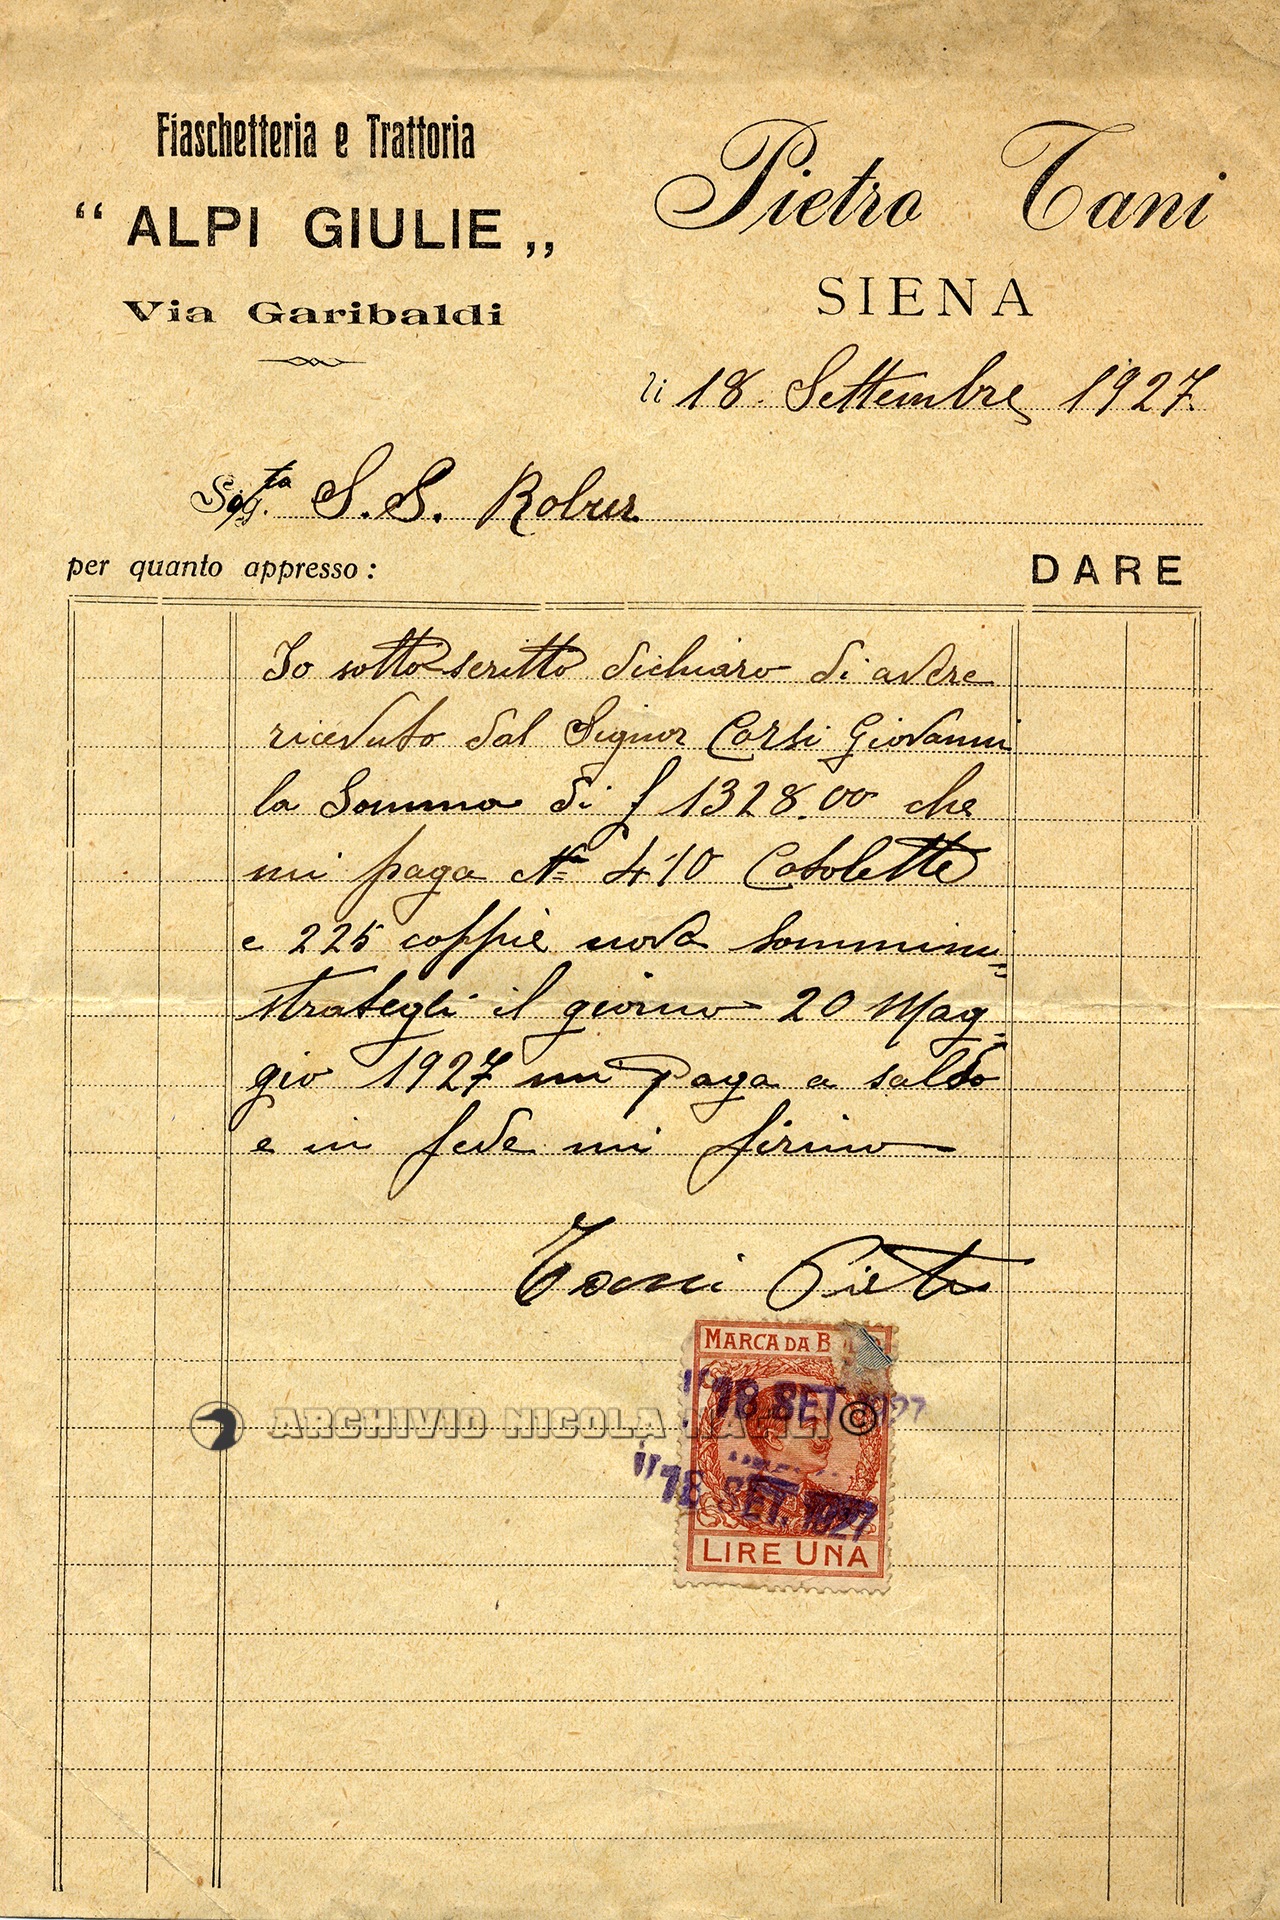 Fiaschetteria e Trattoria
“ ALPI GIULIE „
Via Garibaldi
Pietro Tani
SIENA
li 18 Settembre 1927
Sig.ta S. S. Robur
per quanto appresso :
DARE
Io sottoscritto dichiaro di avere
ricevuto dal Signor Corsi Giovanni
la somma di £ 1328.00 che
mi paga N= 410 Cosolette
e 225 coppie nova sommini=
strategli il giorno 20 Mag=
gio 1927 mi paga a saldo
e in fede mi firmo
Tani Pietro
MARCA DA
"18 SET 1927
ARCHIVIO NICOLA NATILI ©
"18 SET. 1927
LIRE UNA